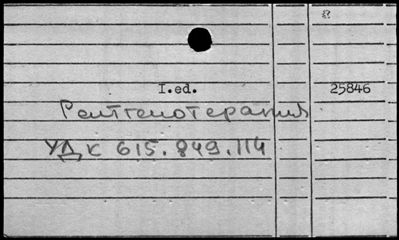 8
I.ed. 25846
Рентгенотерапия
УДК 615.849.114